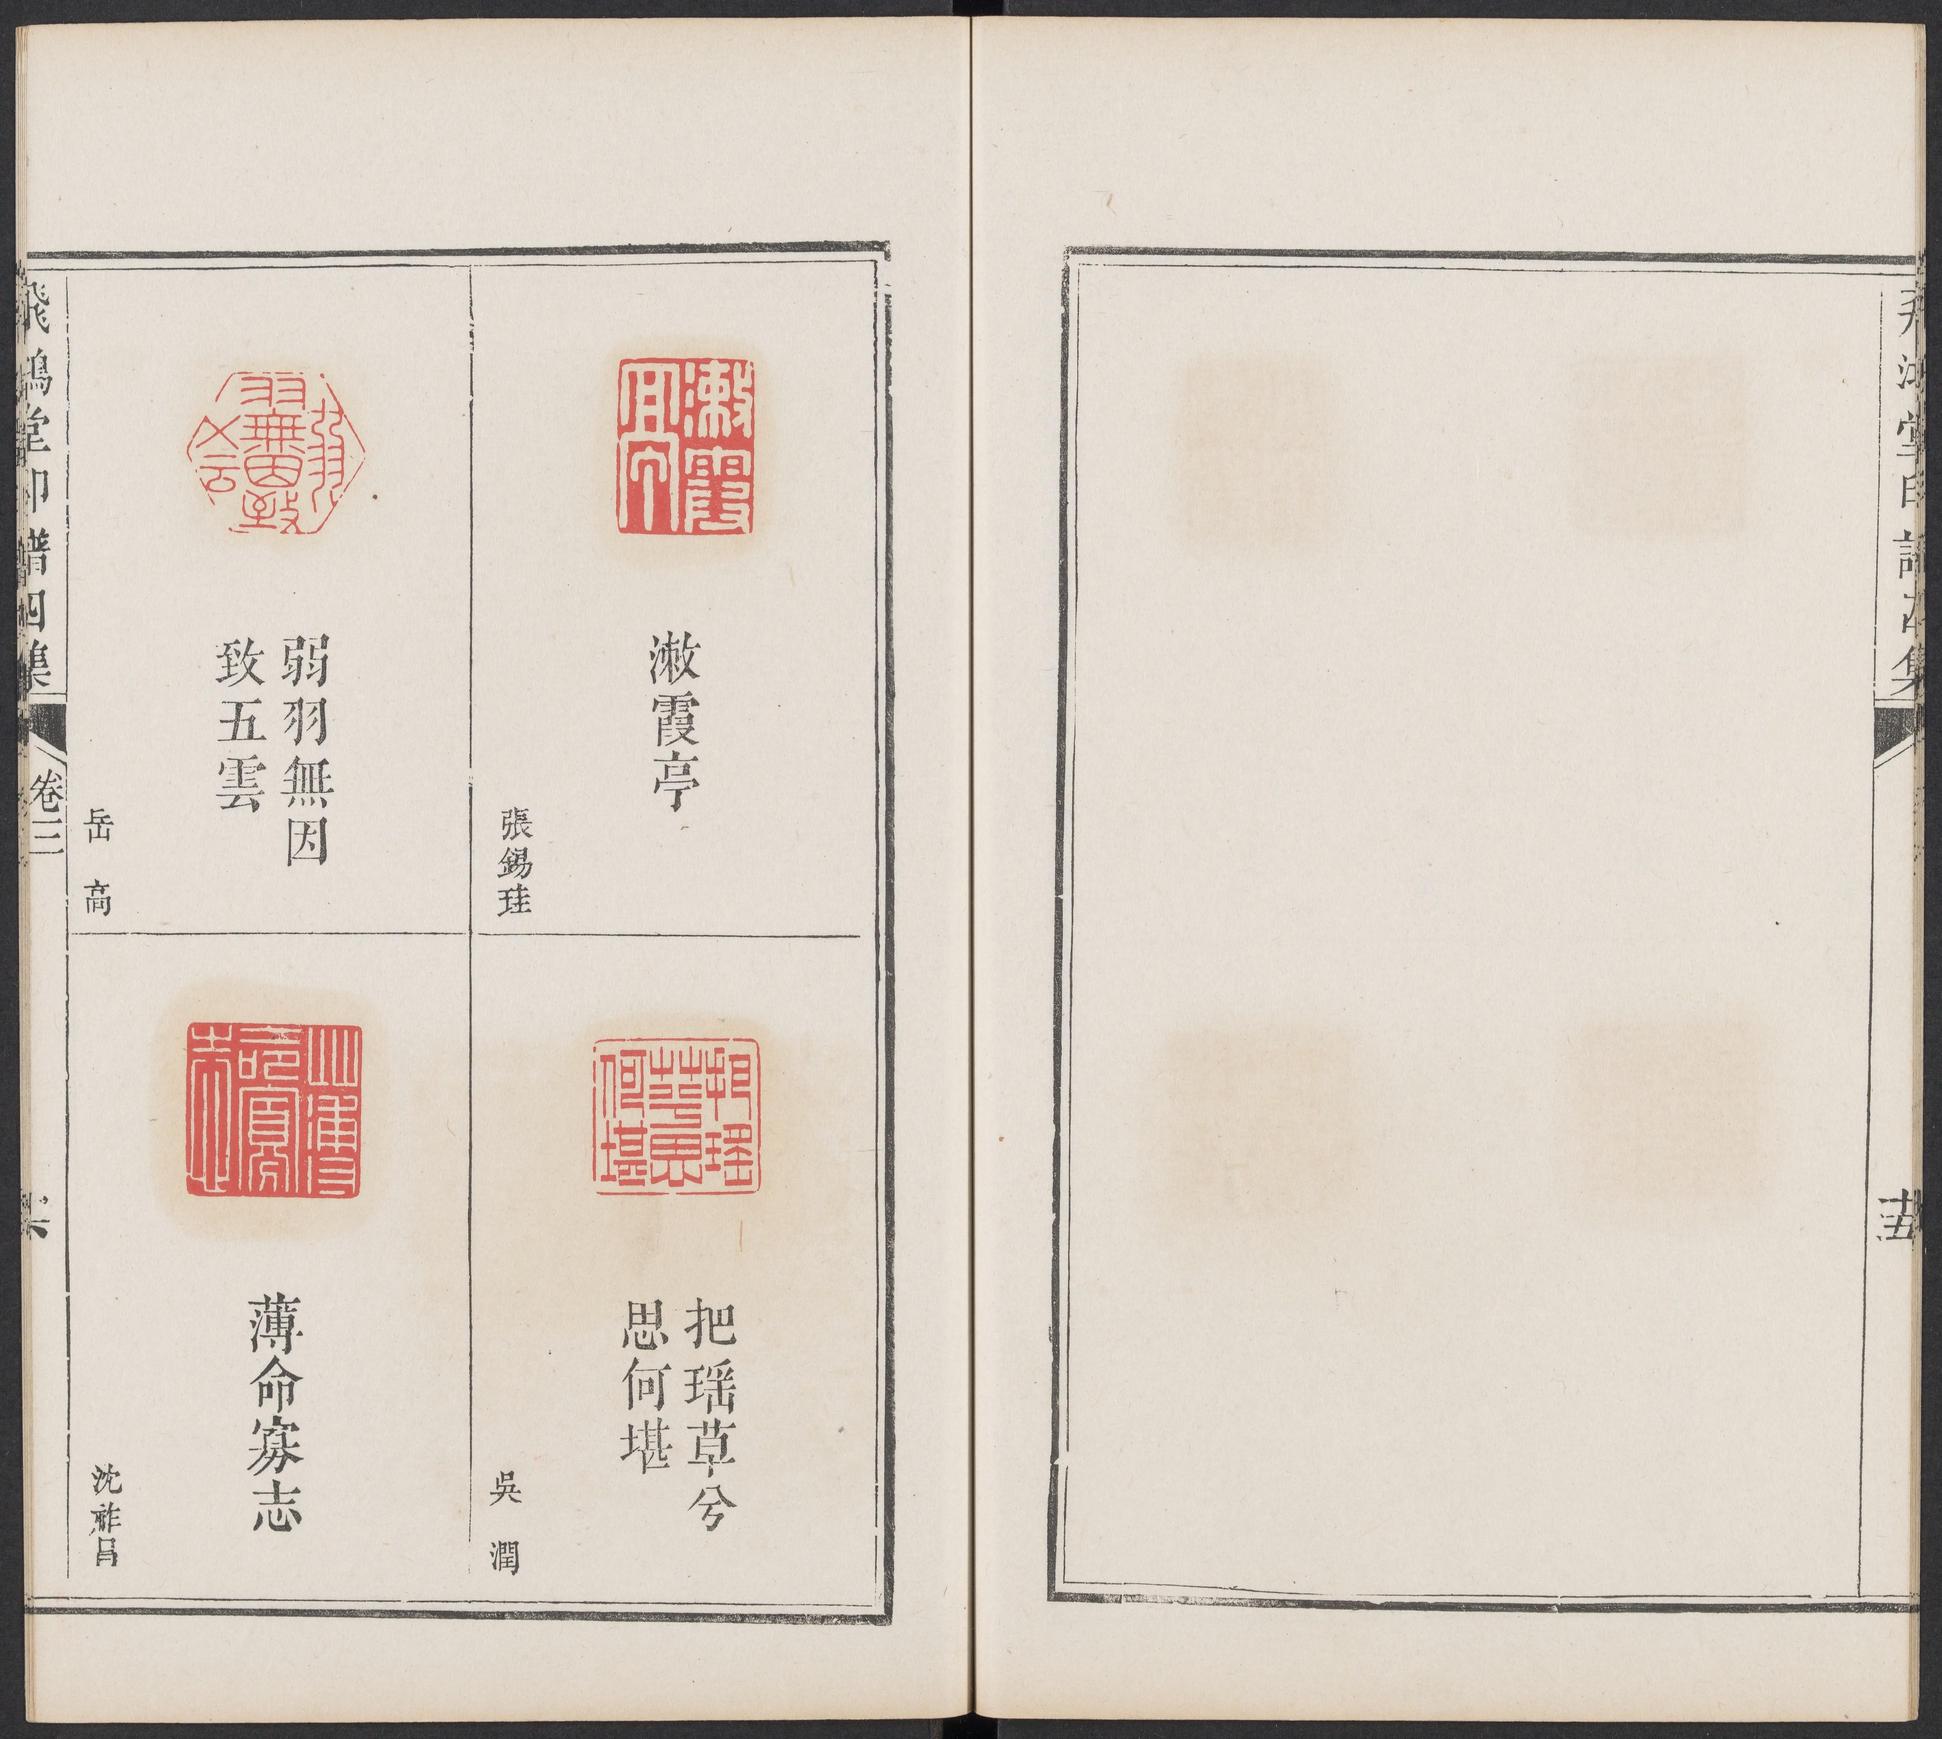 飛鴻堂印譜四集
十五
漱霞亭
張錫珪
把瑶草兮
思何堪
吳潤
弱羽無因
致五雲
岳高
薄命寡志
沈祚昌
飛鴻堂印譜四集
卷三